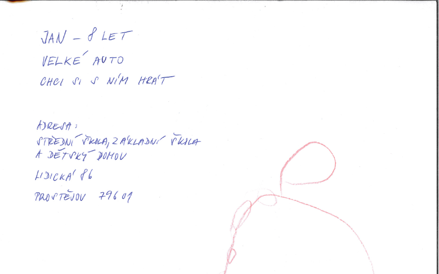 JAN - 8 LET
VELKÉ AUTO
CHCI SI S NÍM HRÁT
ADRESA:
STŘEDNÍ ŠKOLA, ZÁKLADNÍ ŠKOLA
A DĚTSKÝ DOMOV
LIDICKÁ 86
PROSTĚJOV 79601